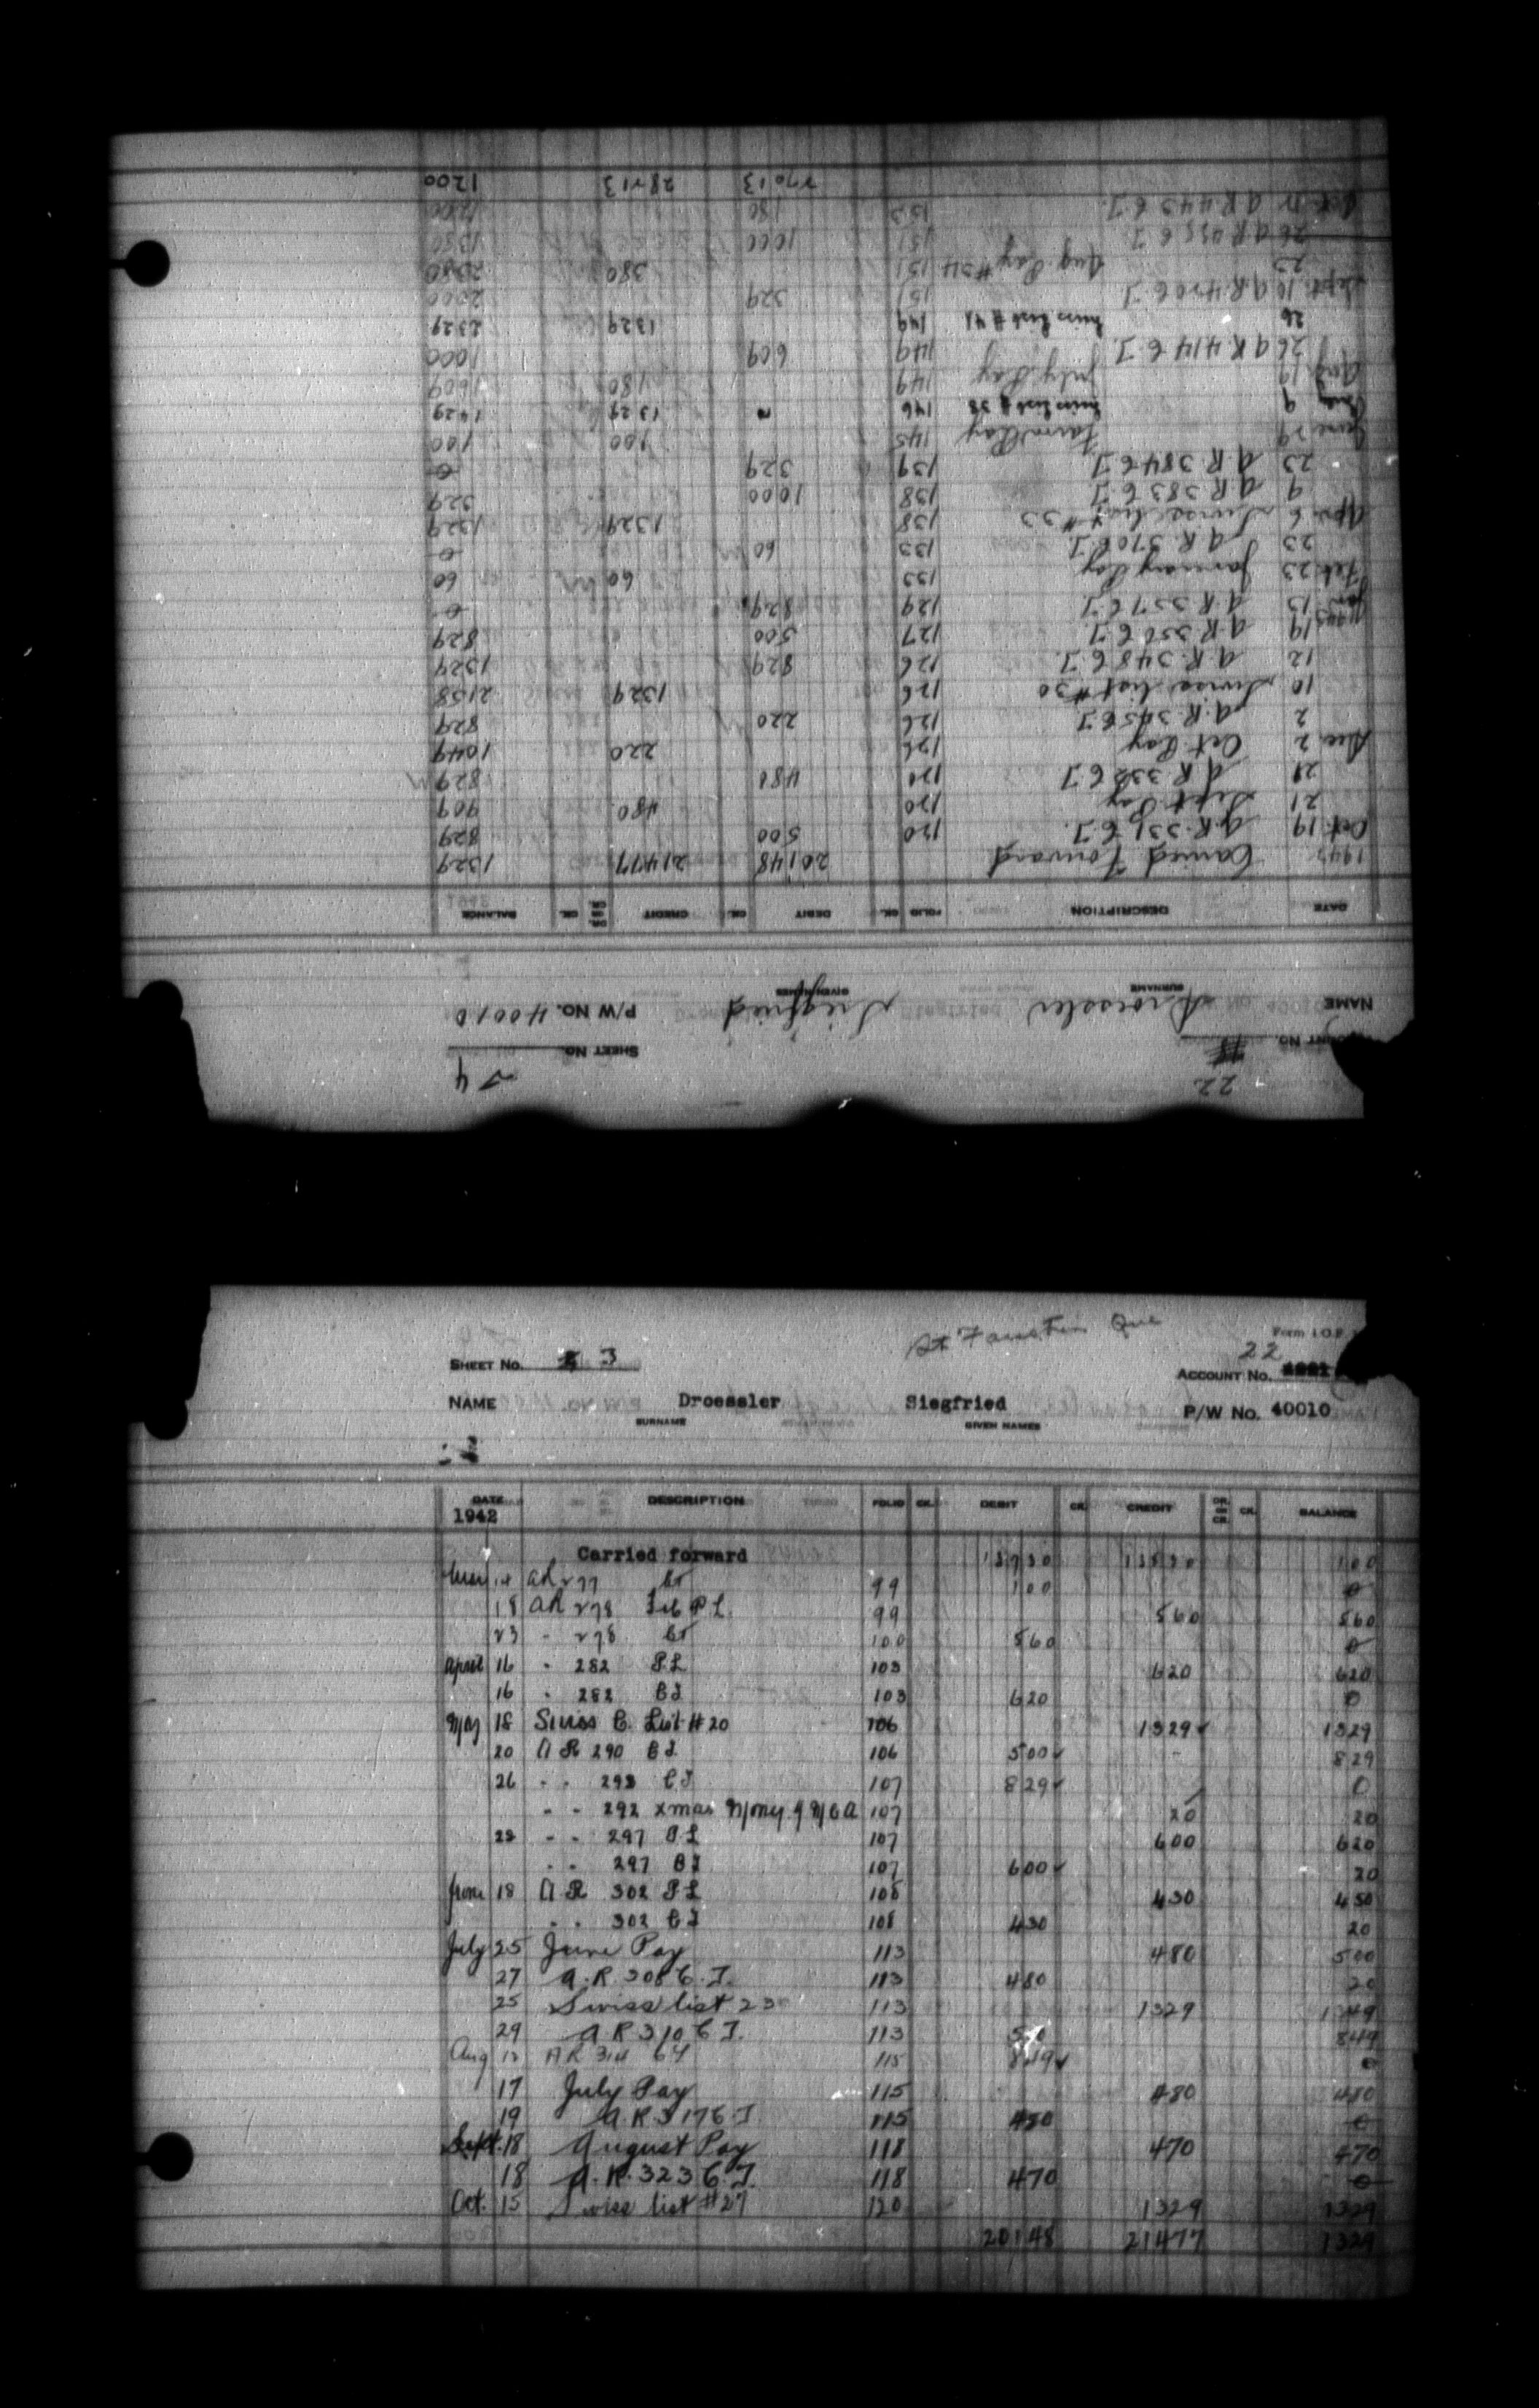 St Faustin Que
Form I.O.P.
SHEET No. 3
22
ACCOUNT No.
NAME Droessler Siegfried P/W No. 40010
SURNAME GIVEN NAMES
DATE DESCRIPTION FOLIO CK. DEBIT CR. CREDIT DR. OR CR. CR. BALANCE
1942
Carried forward 100
14 AR 277 99 100 0
18 AR 278 Feb P L 99 560 560
23 - 278 100 560 0
April 16 - 282 P.L 103 620 620
16 - 282 C J 103 620 0
May 18 Swiss C. List #20 106 1329 1329
20 A R 290 C J 106 500 829
26 - - 293 C J 107 829 0
- - 292 xmas Money 107 20 20
28 - - 297 P L 107 600 620
- - 297 C J 107 600 20
June 18 A R 302 P L 108 430 450
- - 302 C J 108 430 20
July 25 June Pay 113 480 500
27 A.R. 308 C.J. 113 480 20
25 Swiss list 23 113 1329 1349
29 A R 310 C J. 113 849
Aug AR 314 115 849 0
17 July Pay 115 480 480
19 A.R. 317 C J 115 480 0
Sept. 18 August Pay 118 470 470
18 A.R. 323 C.J. 118 470 0
Oct. 15 Swiss list #27 120 1329 1329
20148 21477 1329
22
ACCOUNT No. SHEET No. 4
NAME Droessler Siegfried P/W No. 40010
SURNAME GIVEN NAMES
DATE DESCRIPTION FOLIO CK. DEBIT CR. CREDIT DR. OR CR. CR. BALANCE
1942 Carried Forward 20148 21477 1329
Oct. 19 A.R. 331 C.J. 120 500 829
21 Sept Pay 120 480 909
21 A R 332 C J 120 829
Dec 2 Oct Pay 126 220 1049
2 A.R. 345 C J 126 220 829
10 Swiss list #30 126 1329 2158
12 A.R. 348 C.J. 126 829 1329
19 A.R. 350 C.J. 127 500 829
1943 Jan 13 A.R. 357 C.J. 129 829 0
Feb 23 January Pay 133 60 60
23 A.R. 370 C.J. 133 60 0
Apr 6 Swiss list #33 138 1329 1329
9 A.R. 383 C.J. 138 1000 329
23 A.R. 384 C.J. 139 329 0
June 29 Farm Pay 145 100 100
9 Swiss list # 38 146 1329 1429
Aug 19 July Pay 149 180 1609
26 A.R. 414 C.J. 149 609 1000
26 Swiss list # 41 149 1329 2329
Sept. 10 A.R. 420 C.J. 151 329 2000
23 Aug. Pay #34 151 380 2380
26 A.R. 425 C.J. 151 1000 1380
A.R. 443 C.J. 153 180 1200
27013 28213 1200